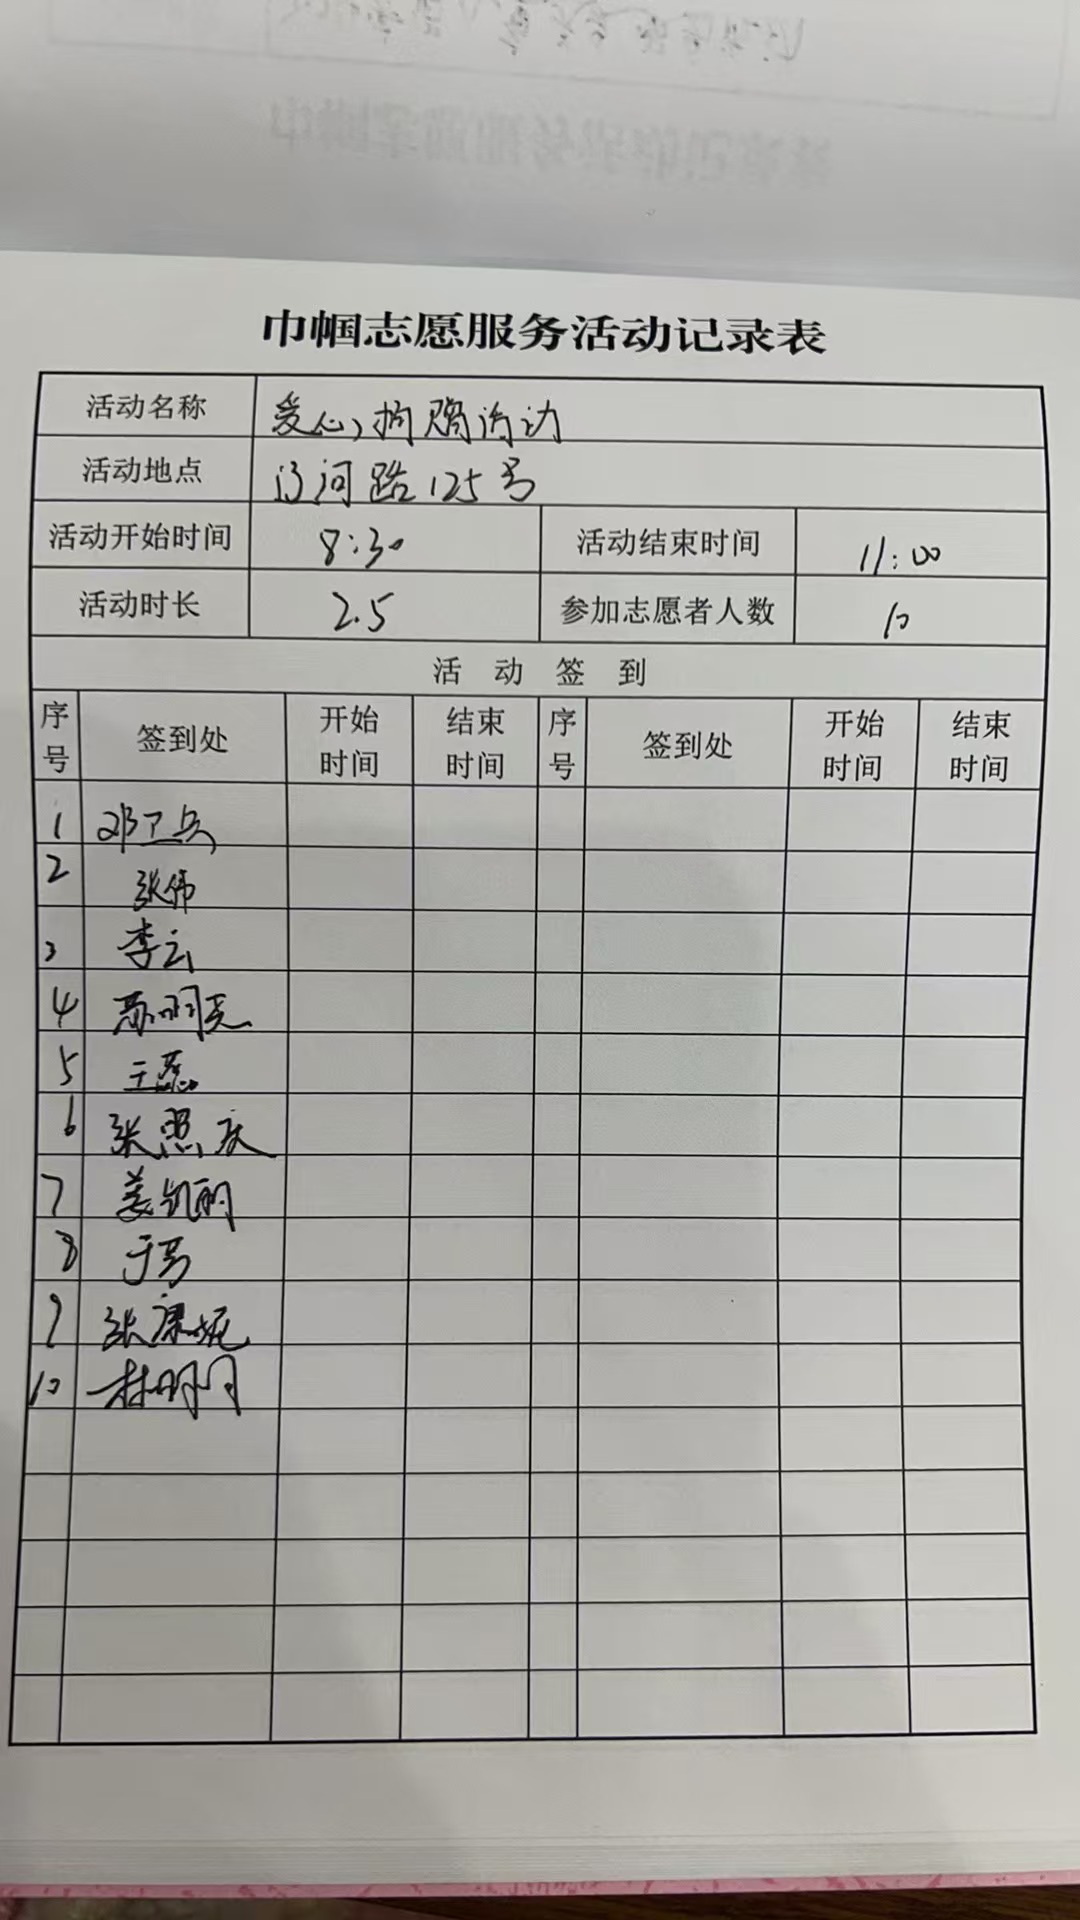 巾帼志愿服务活动记录表
活动名称 爱心捐赠活动
活动地点 辽河路125号
活动开始时间 8:30 活动结束时间 11:00
活动时长 2.5 参加志愿者人数 10
活动签到
序号 签到处 开始时间 结束时间 序号 签到处 开始时间 结束时间
1 邓卫兵
2 张伟
3 李云
4
5 王蕊
6 张照庆
7 姜凯丽
8
9 张康妮
10 杜明月